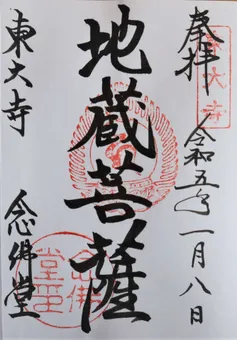 奉拝
令和五年一月八日
東大寺
地蔵菩薩
東大寺
念佛堂
念佛堂王